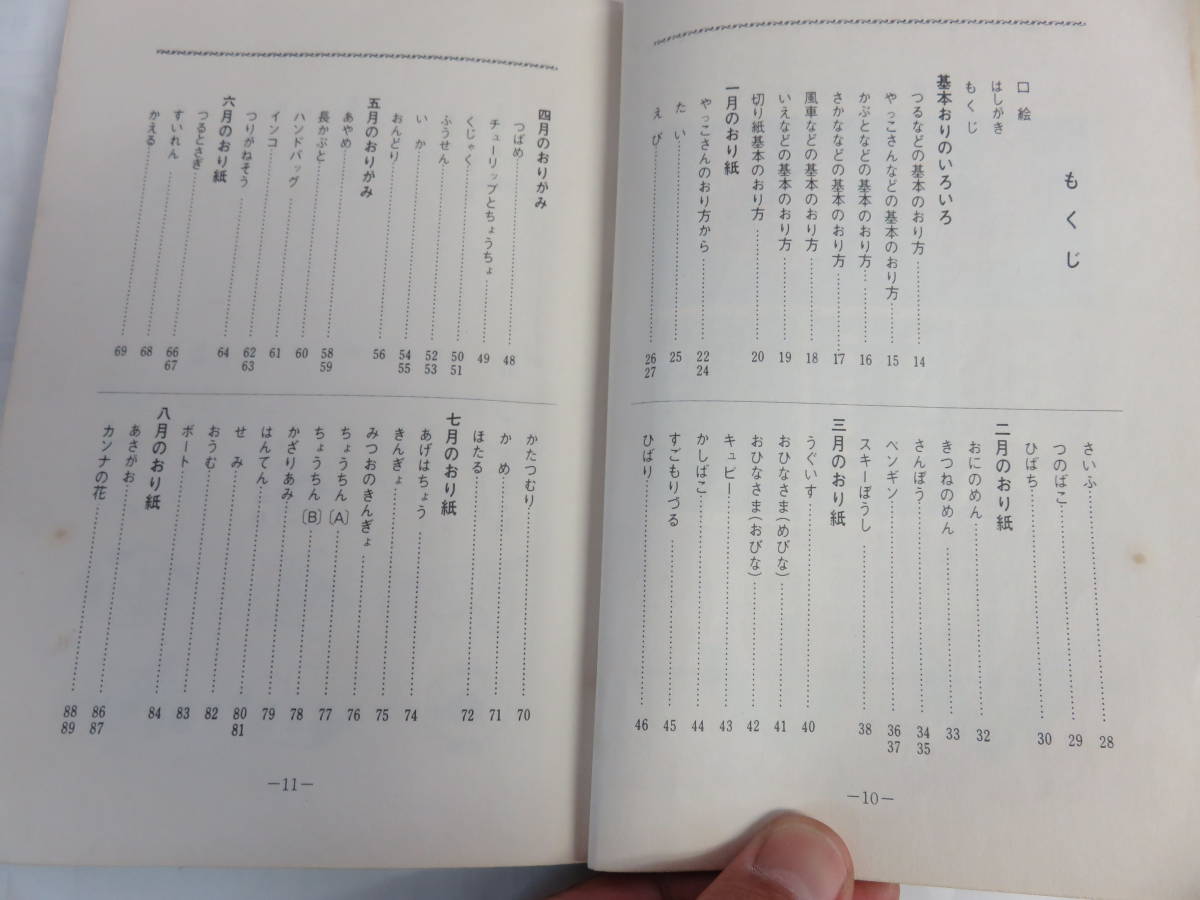 もくじ
口絵
はしがき
もくじ
基本おりのいろいろ
つるなどの基本のおり方……14
やっこさんなどの基本のおり方……15
かぶとなどの基本のおり方……16
さかななどの基本のおり方……17
風車などの基本のおり方……18
いえなどの基本のおり方……19
切り紙基本のおり方……20
一月のおり紙
やっこさんのおり方から……22 24
たい……25
えび……26 27
さいふ……28
つのばこ……29
ひばち……30
二月のおり紙
おにのめん……32
きつねのめん……33
さんぼう……34 35
ペンギン……36 37
スキーぼうし……38
三月のおり紙
うぐいす……40
おひなさま(めびな)……41
おひなさま(おびな)……42
キュピー……43
かしばこ……44
すごもりづる……45
ひばり……46
—10—
四月のおりがみ
つばめ……48
チューリップとちょうちょ……49
くじゃく……50 51
ふうせん……52 53
いか……54 55
おんどり……56
五月のおりがみ
あやめ……58 59
長かぶと……60
ハンドバッグ……61
インコ……62 63
つりがねそう……64
六月のおり紙
つるとさぎ……66 67
すいれん……68
かえる……69
かたつむり……70
かめ……71
ほたる……72
七月のおり紙
あげはちょう……74
きんぎょ……75
みつおのきんぎょ……76
ちょうちん〔A〕……77
ちょうちん〔B〕……78
かざりあみ……79
はんてん……80 81
せみ……82
おうむ……83
ボート……84
八月のおり紙
あさがお……86 87
カンナの花……88 89
—11—